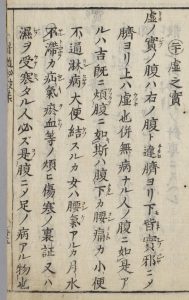 ㊉虚之實
虚ノ實ノ腹ハ右ノ腹ト違臍ヨリ下皆實邪ニメ
臍ヨリ上ハ虚也併無病ナル人ノ腹ニ如是ア
ルハ吉既ニ煩腹ニ如斯ハ腹下カ腰痛カ小便
不通淋病大便結スルカ女ハ腰氣アルカ月水
不滞カ疝氣瘀血等ノ煩ヒ傷寒ノ裏証又ハ
濕ヲ受寒タル人必ズ是腹ニメ足ノ病アル物也